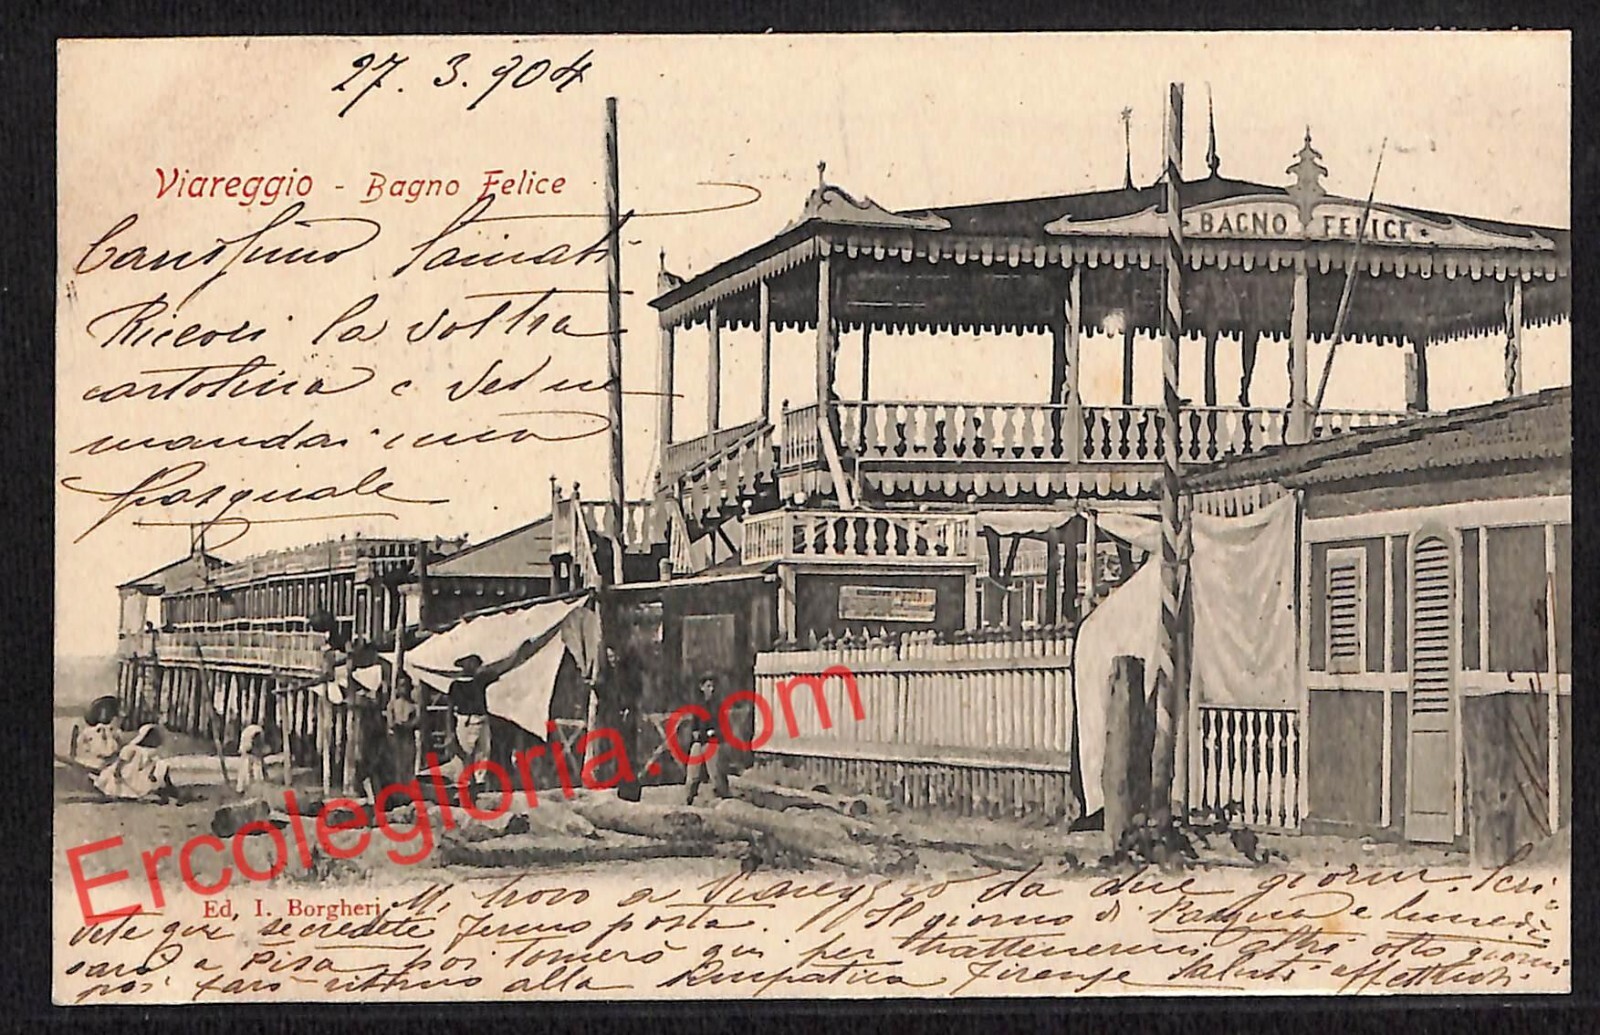 27. 3. 904
Viareggio - Bagno Felice
Carissimo
Ricevi la vostra
cartolina e ve ne
mandai una
Pasquale
BAGNO FELICE
Ercolegloria.com
Ed. I. Borgheri
Mi trovo a Viareggio da due giorni. Scri-
vete qui se credete fermo posta. Il giorno di Pasqua e lunedì
sarò a Pisa poi tornerò qui per trattenermi altri otto giorni
poi farò ritorno alla simpatica Firenze Saluti affettuosi